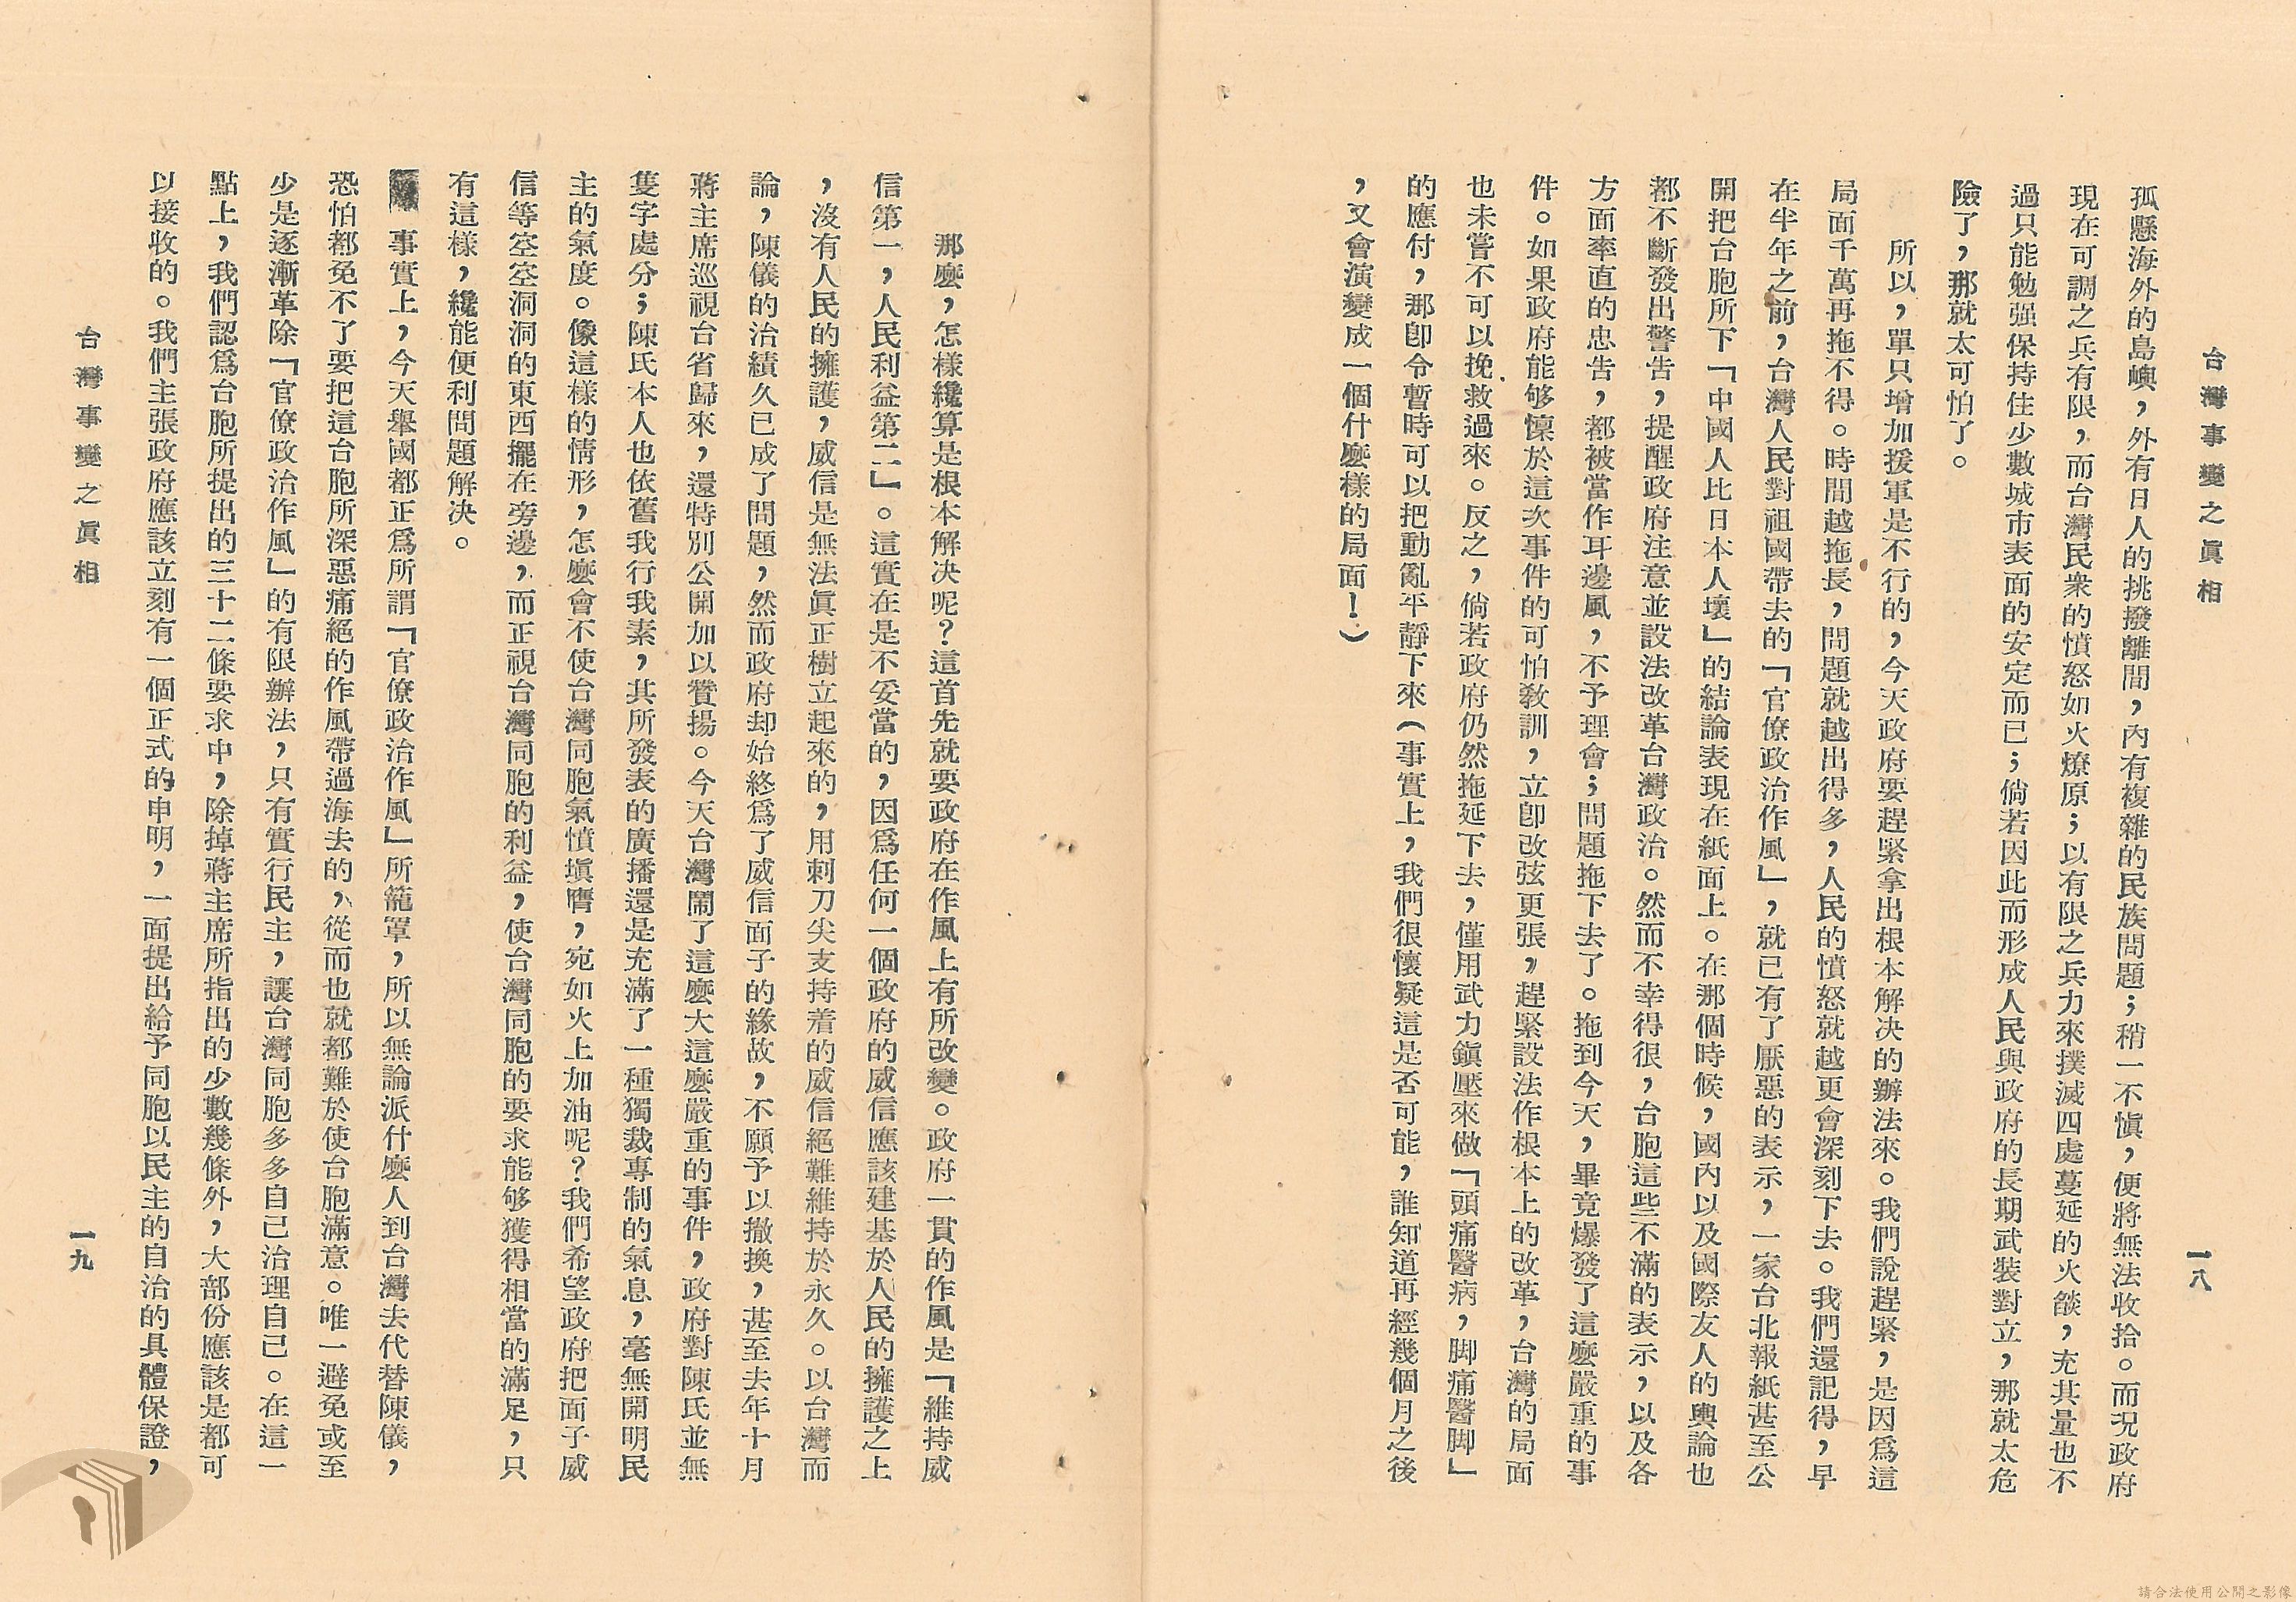 台灣事變之眞相
一八
孤懸海外的島嶼，外有日人的挑撥離間，內有複雜的民族問題；稍一不愼，便將無法收拾。而況政府
現在可調之兵有限，而台灣民衆的憤怒如火燎原；以有限之兵力來撲滅四處蔓延的火燄，充其量也不
過只能勉强保持住少數城市表面的安定而已；倘若因此而形成人民與政府的長期武裝對立，那就太危
險了，那就太可怕了。
所以，單只增加援軍是不行的，今天政府要趕緊拿出根本解決的辦法來。我們說趕緊，是因爲這
局面千萬再拖不得。時間越拖長，問題就越出得多，人民的憤怒就越更會深刻下去。我們還記得，早
在半年之前，台灣人民對祖國帶去的「官僚政治作風」，就已有了厭惡的表示，一家台北報紙甚至公
開把台胞所下「中國人比日本人壞」的結論表現在紙面上。在那個時候，國內以及國際友人的輿論也
都不斷發出警告，提醒政府注意並設法改革台灣政治。然而不幸得很，台胞這些不滿的表示，以及各
方面率直的忠告，都被當作耳邊風，不予理會；問題拖下去了。拖到今天，畢竟爆發了這麽嚴重的事
件。如果政府能够懍於這次事件的可怕敎訓，立卽改弦更張，趕緊設法作根本上的改革，台灣的局面
也未嘗不可以挽救過來。反之，倘若政府仍然拖延下去，僅用武力鎭壓來做「頭痛醫病，脚痛醫脚」
的應付，那卽令暫時可以把動亂平靜下來（事實上，我們很懷疑這是否可能，誰知道再經幾個月之後
，又會演變成一個什麽樣的局面！）
那麽，怎樣纔算是根本解決呢？這首先就要政府在作風上有所改變。政府一貫的作風是「維持威
信第一，人民利益第二」。這實在是不妥當的，因爲任何一個政府的威信應該建基於人民的擁護之上
，沒有人民的擁護，威信是無法眞正樹立起來的，用刺刀尖支持着的威信絕難維持於永久。以台灣而
論，陳儀的治績久已成了問題，然而政府却始終爲了威信面子的緣故，不願予以撤換，甚至去年十月
蔣主席巡視台省歸來，還特別公開加以贊揚。今天台灣鬧了這麽大這麽嚴重的事件，政府對陳氏並無
隻字處分；陳氏本人也依舊我行我素，其所發表的廣播還是充滿了一種獨裁專制的氣息，毫無開明民
主的氣度。像這樣的情形，怎麽會不使台灣同胞氣憤塡膺，宛如火上加油呢？我們希望政府把面子威
信等空空洞洞的東西擺在旁邊，而正視台灣同胞的利益，使台灣同胞的要求能够獲得相當的滿足，只
有這樣，纔能便利問題解決。
事實上，今天舉國都正爲所謂「官僚政治作風」所籠罩，所以無論派什麽人到台灣去代替陳儀，
恐怕都免不了要把這台胞所深惡痛絕的作風帶過海去的，從而也就都難於使台胞滿意。唯一避免或至
少是逐漸革除「官僚政治作風」的有限辦法，只有實行民主，讓台灣同胞多多自己治理自己。在這一
點上，我們認爲台胞所提出的三十二條要求中，除掉蔣主席所指出的少數幾條外，大部份應該是都可
以接收的。我們主張政府應該立刻有一個正式的申明，一面提出給予同胞以民主的自治的具體保證，
台灣事變之眞相
一九
請合法使用公開之影像